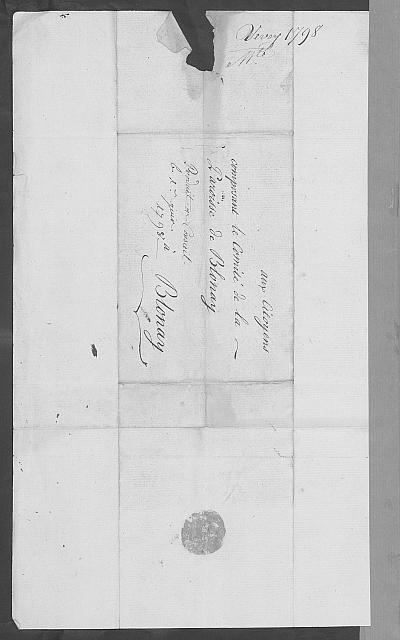 Vevey 1798
aux Citoyens
composant le Comité de la
Paroisse de Blonay
à
Blonay
Produit en Conseil
le 1er
1798